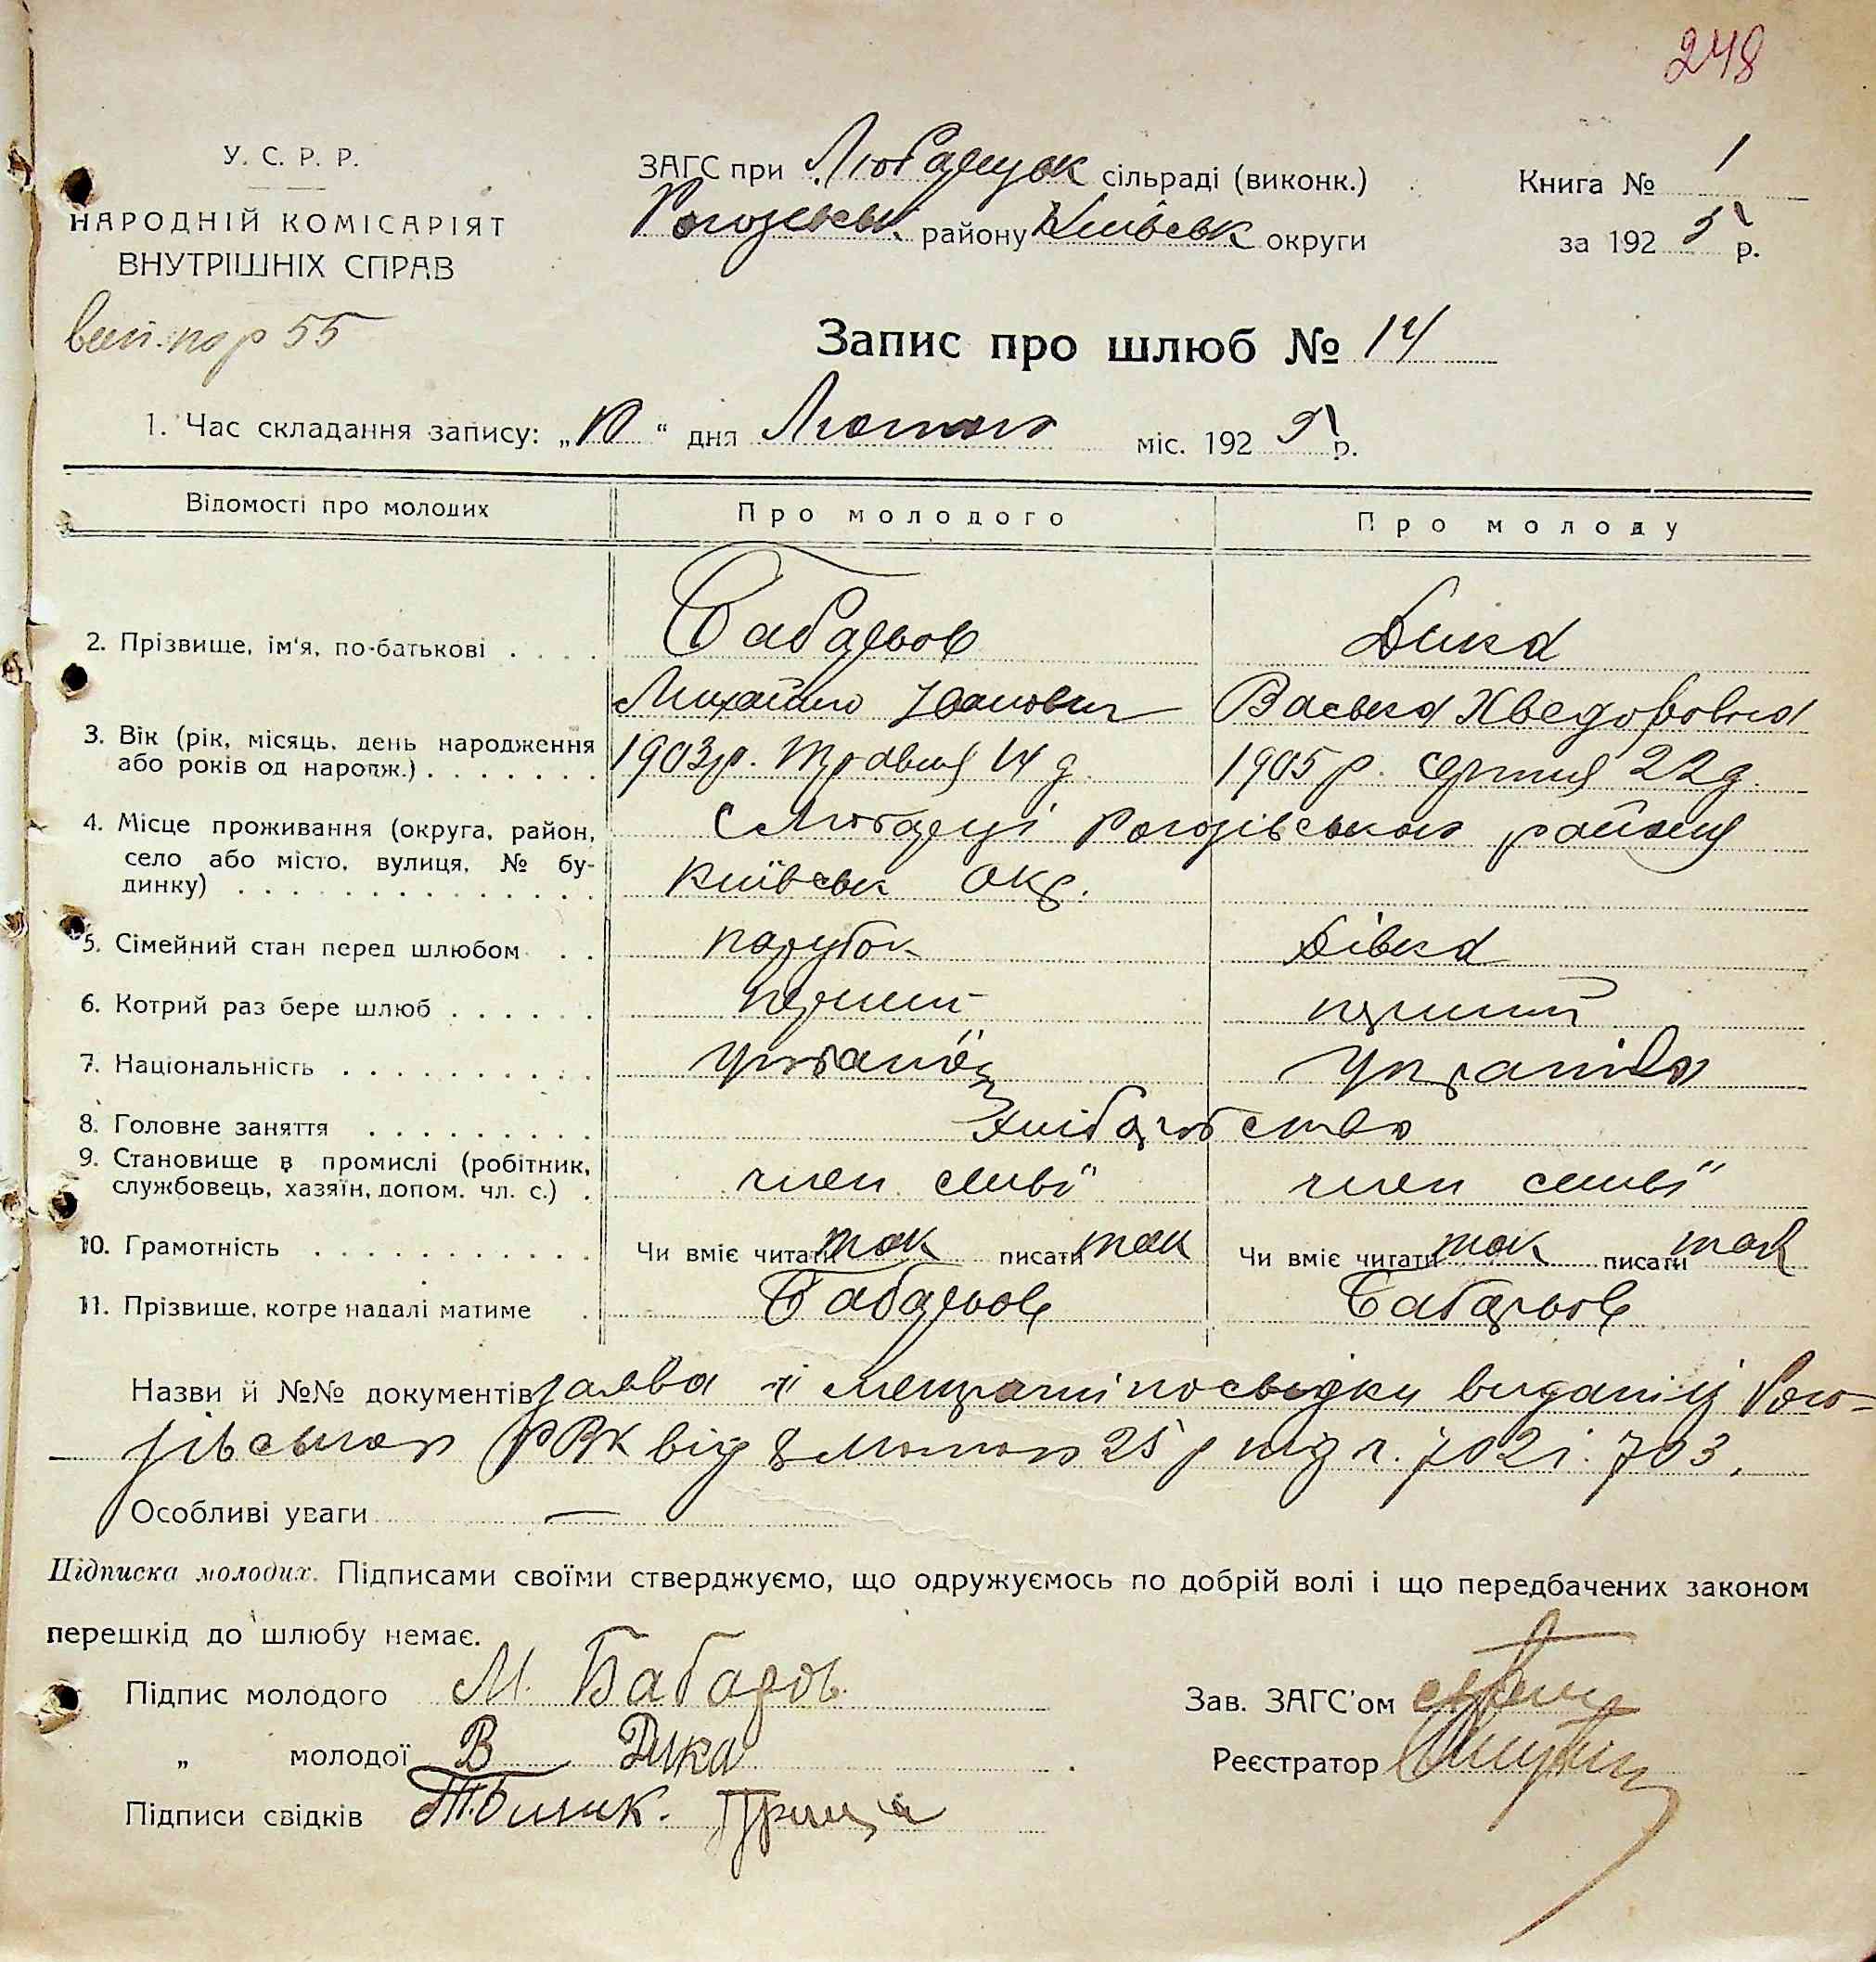 248
У. С. Р. Р.
НАРОДНІЙ КОМІСАРІЯТ
ВНУТРІШНІХ СПРАВ
ЗАГС при Любарецьк сільраді (виконк.)
Рогозівськ району Київськ округи
Книга № 1
за 1925 р.
55
Запис про шлюб № 14
1. Час складання запису: „10“ дня Лютого міс. 1925 р.
Відомості про молодих Про молодого Про молоду
2. Прізвище, ім'я, по-батькові . . . . Бабарьов Дика
Михайло Іванович Васька Хведоровна
3. Вік (рік, місяць, день народження
або років од нарож.) . . . . . . . 1903 р. травня 14 д. 1905 р. серпня 22 д.
4. Місце проживання (округа, район,
село або місто, вулиця, № бу-
динку) . . . . . . . . . . . . . .
с Любарці Рогозівського району
Київськ окр.
5. Сімейний стан перед шлюбом . . парубок дівка
6. Котрий раз бере шлюб . . . . . . перший перший
7. Національність . . . . . . . . . . українец українка
8. Головне заняття . . . . . . . . . хліборобство
9. Становище в промислі (робітник,
службовець, хазяїн, допом. чл. с.) . член семьї член семьї
10. Грамотність . . . . . . . . . . . Чи вміє читати так писати так Чи вміє читати так писати так
11. Прізвище, котре надалі матиме . Бабарьов Бабарьов
Назви й №№ документів заява і посвідки видані Рого-
зівського РВК від 8 Лютого 25 р під ч. 702 і 703.
Особливі уваги —
Підписка молодих. Підписами своїми стверджуємо, що одружуємось по добрій волі і що передбачених законом
перешкід до шлюбу немає.
Підпис молодого М. Бабаров
„ молодої В Дика
Підписи свідків Т. Билик.
Зав. ЗАГС'ом
Реєстратор